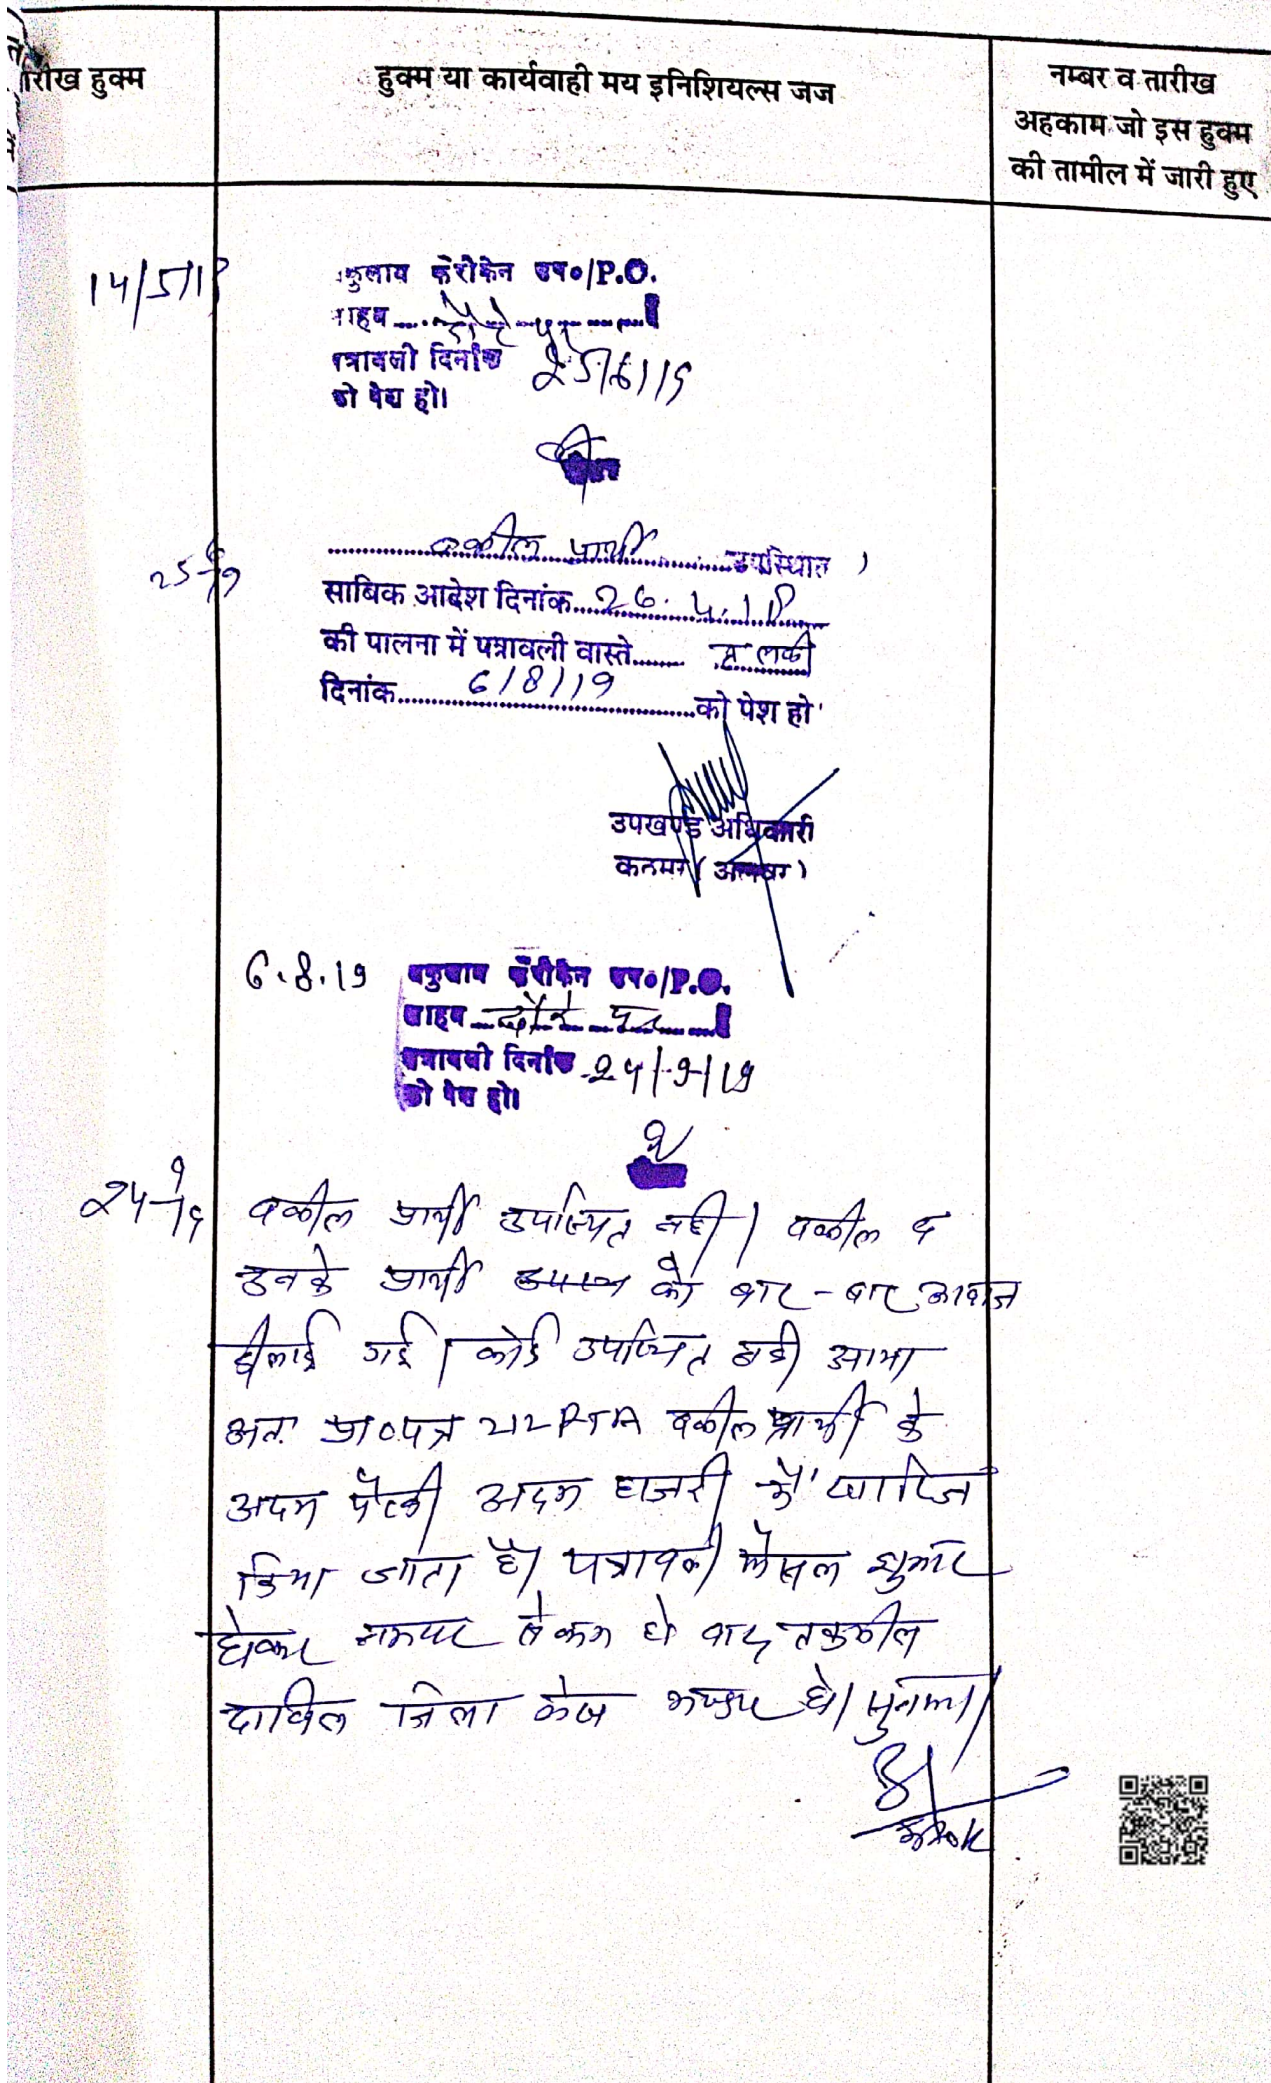 तारीख हुक्म
हुक्म या कार्यवाही मय इनिशियल्स जज
नम्बर व तारीख
अहकाम जो इस हुक्म
की तामील में जारी हुए
14/5/19
फरीकेन उप०/P.O.
साहब दौरे पर
पत्रावली दिनांक 25/6/19
को पेश हो।
25-6-19
वकील प्रार्थी उपस्थित
साबिक आदेश दिनांक 26.4.18
की पालना में पत्रावली वास्ते तलबी
दिनांक 6/8/19 को पेश हो
उपखण्ड अधिकारी
कठूमर (अलवर)
6.8.19
वकुलाय फरीकेन उप०/P.O.
साहब दौरे पर
पत्रावली दिनांक 24/9/19
को पेश हो।
24-9-19
वकील प्रार्थी उपस्थित नहीं। वकील व
उनके प्रार्थी को बार-बार आवाज
दीलाई गई। कोई उपस्थित नही आया
अतः प्रा०पत्र 212 RTA वकील प्रार्थी के
अदम पैरवी अदम हाजरी में खारिज
किया जाता है। पत्रावली फैसल शुमार
होकर नम्बर से कम हो बाद तकमील
दाखिल जिला लेख भण्डार हो।